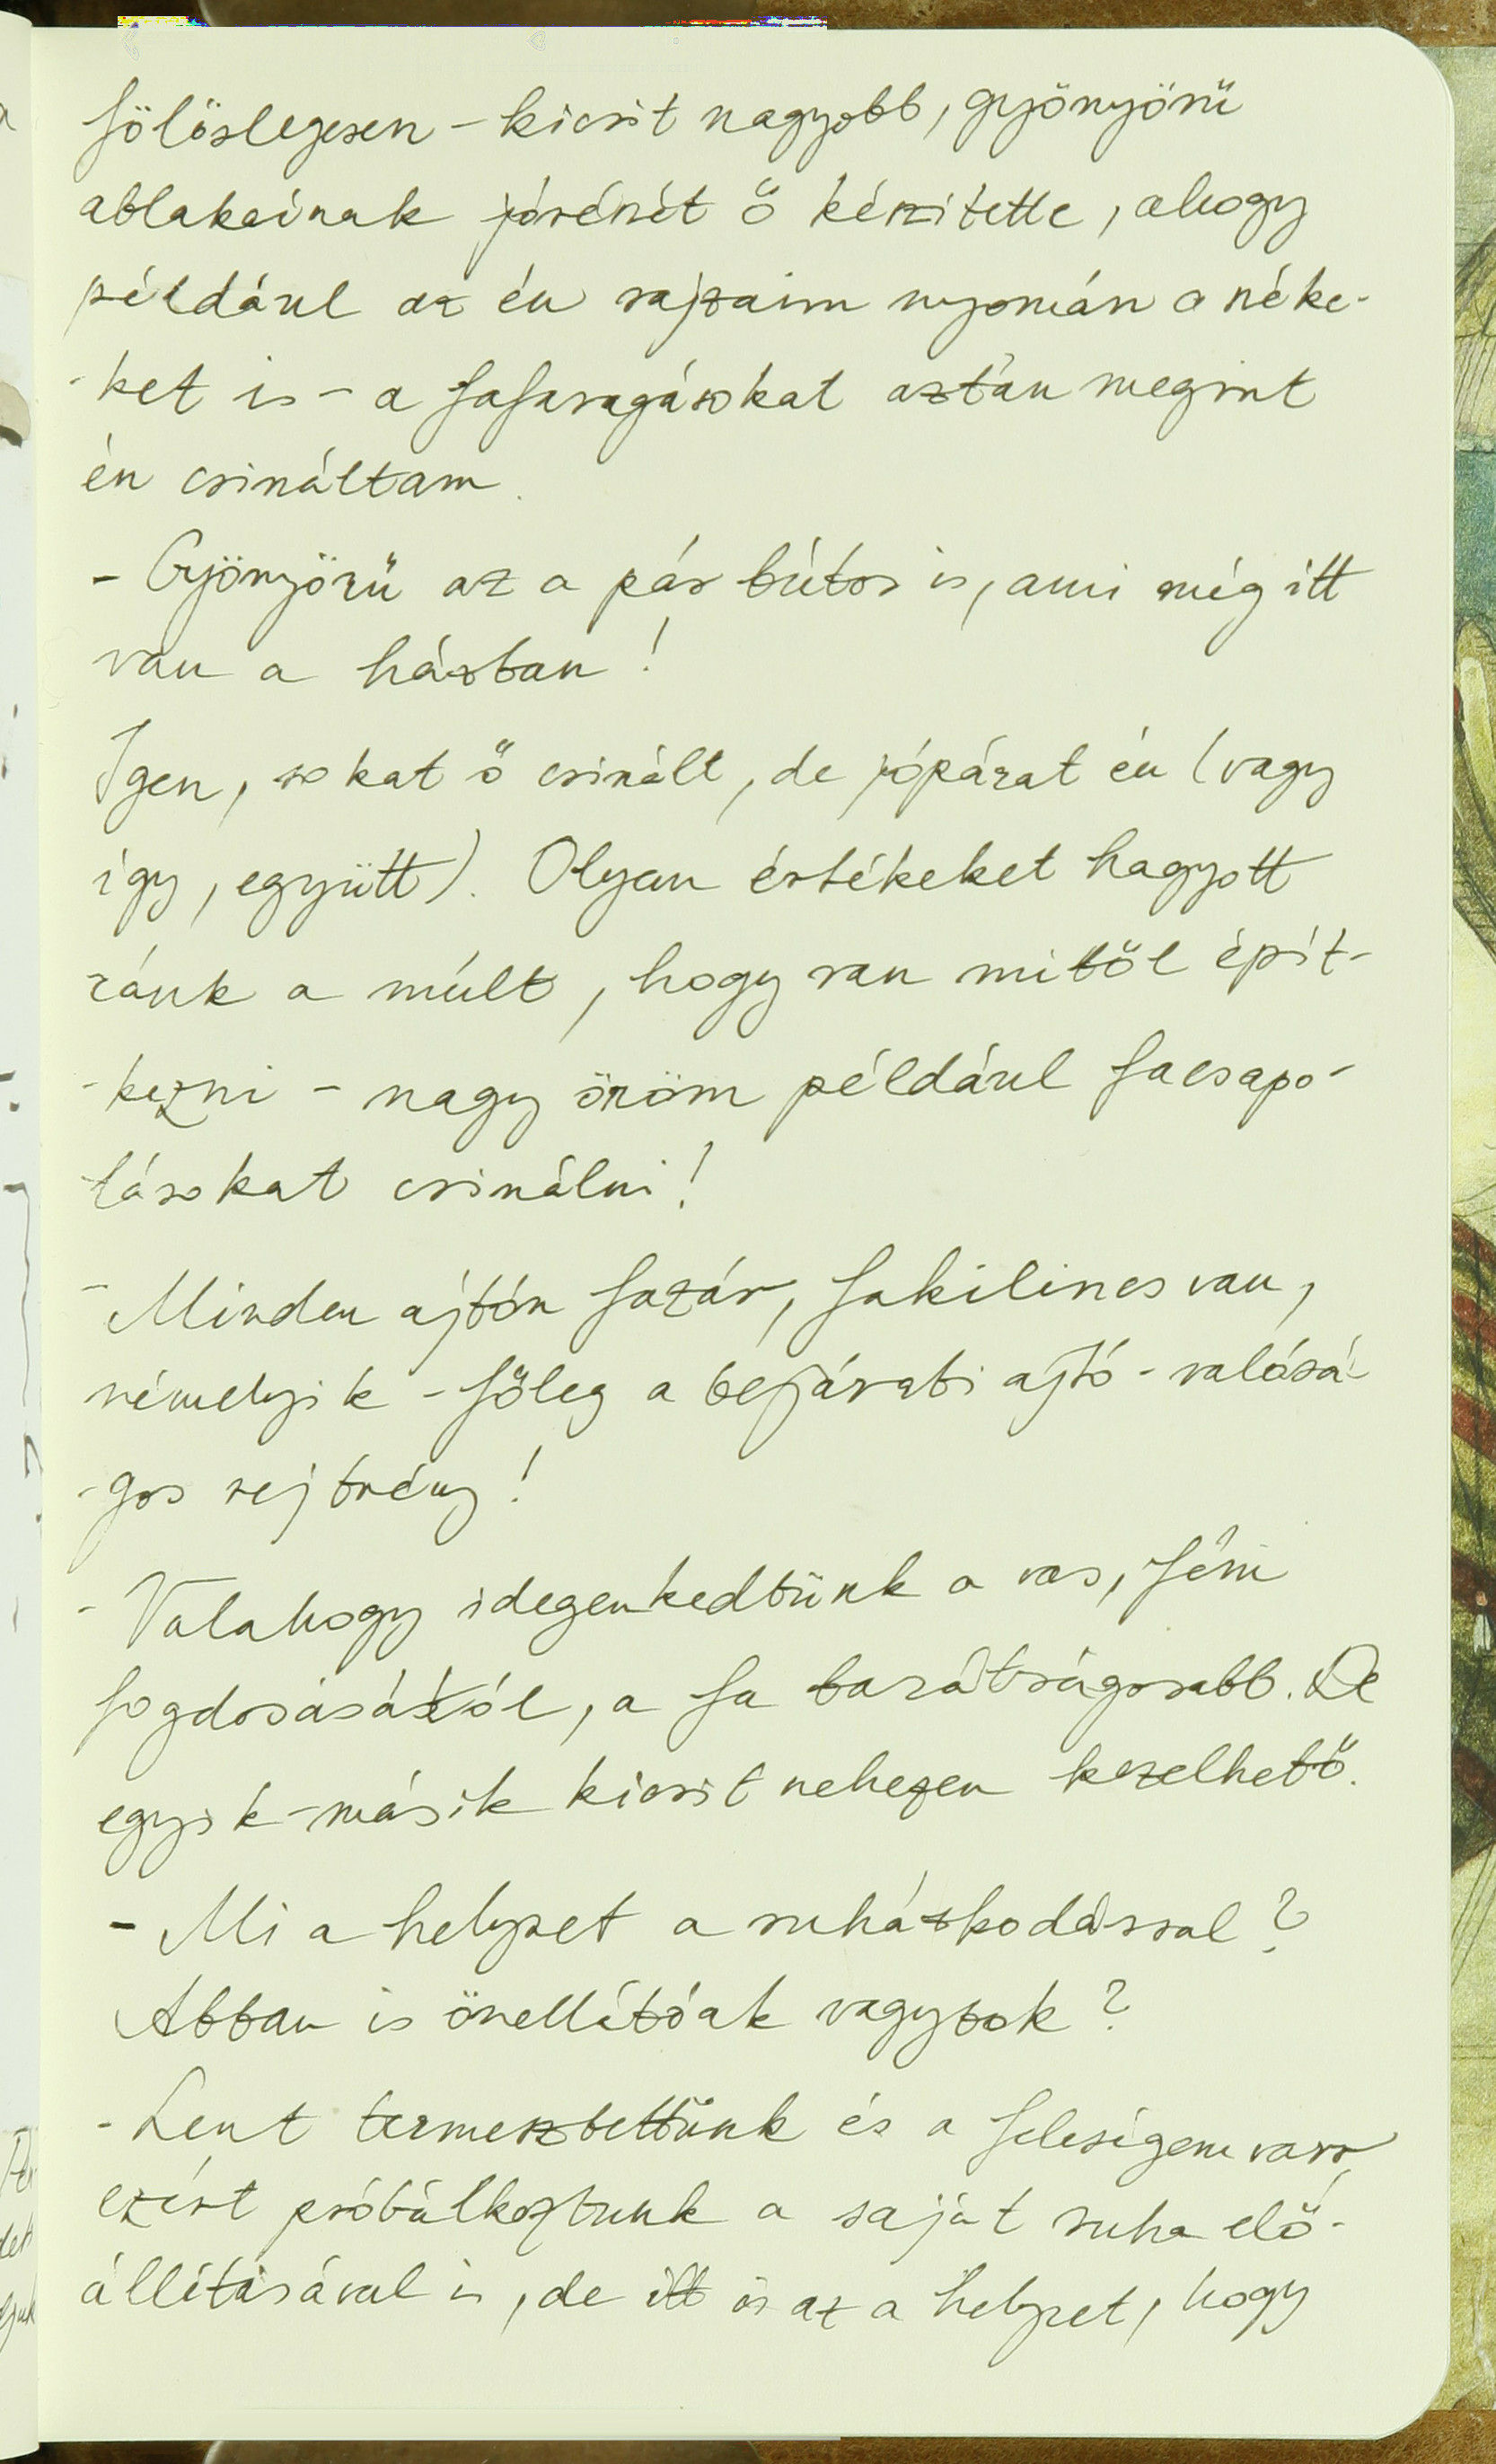 fölöslegesen – kicsit nagyobb, gyönyörű
ablakainak jórészét ő készítette, ahogy
például az én rajzaim nyomán a széke-
-ket is – a fafaragásokat aztán megint
én csináltam.
– Gyönyörű az a pár bútor is, ami még itt
van a házban!
Igen, sokat ő csinált, de jópárat én (vagy
így, együtt). Olyan értékeket hagyott
ránk a múlt, hogy van mitől épít-
-kezni – nagy öröm például facsapo-
lásokat csinálni!
– Minden ajtón fazár, fakilincs van,
némelyik – főleg a bejárati ajtó – valósá-
-gos rejtvény!
- Valahogy idegenkedtünk a vas, fém
fogdosásától, a fa barátságosabb. De
egyik-másik kicsit nehezen kezelhető.
– Mi a helyzet a ruházkodással?
Abban is önellátóak vagytok?
- Lent termesztettünk és a feleségem varr,
ezért próbálkoztunk a saját ruha elő-
állításával is, de itt is az a helyzet, hogy